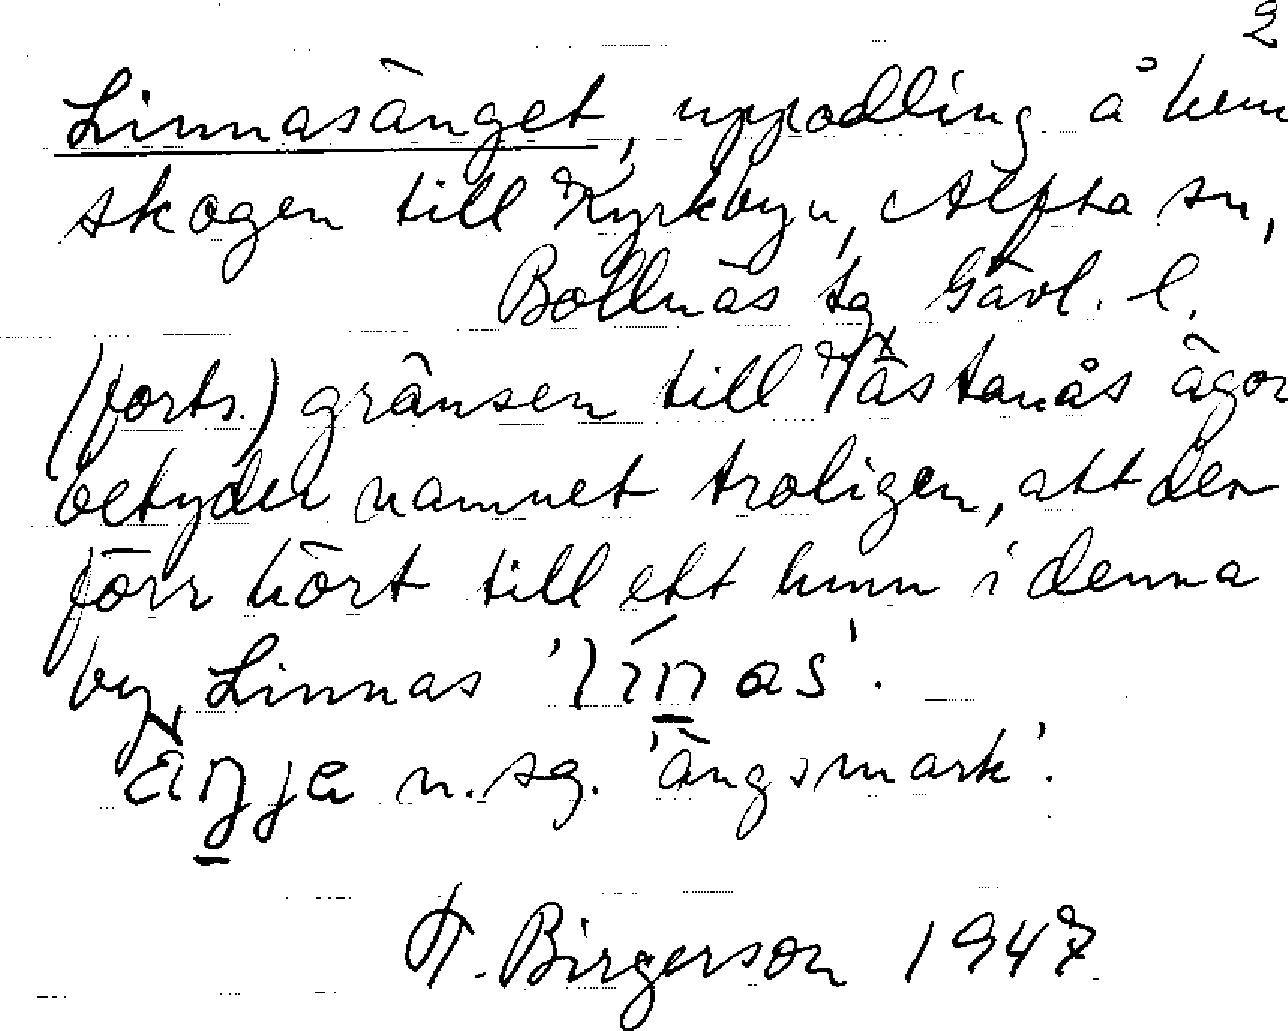 2
Linnasänget, uppodling å hem
skogen till Kyrkbyn, Alfta sn,
Bollnäs tg Gävl. l.
(forts.) gränsen till Västanås ägor
betyder namnet troligen, att den
förr hört till ett hmn i denna
by, Linnas 'línas'.
äŋja n. sg. 'ängsmark'.
F. Birgerson 1947